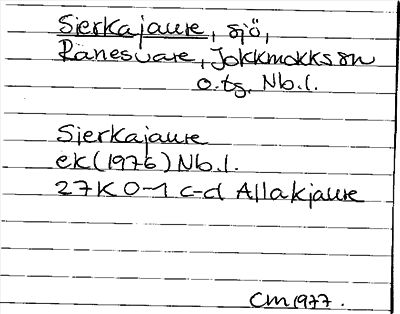 Sierkajaure, sjö,
Ranesvare, Jokkmokks sn
o. tg. Nb.l.
Sierkajaure
ek (1976) Nb.l.
27K 0-1 c-d Allakjaure
CM 1977.